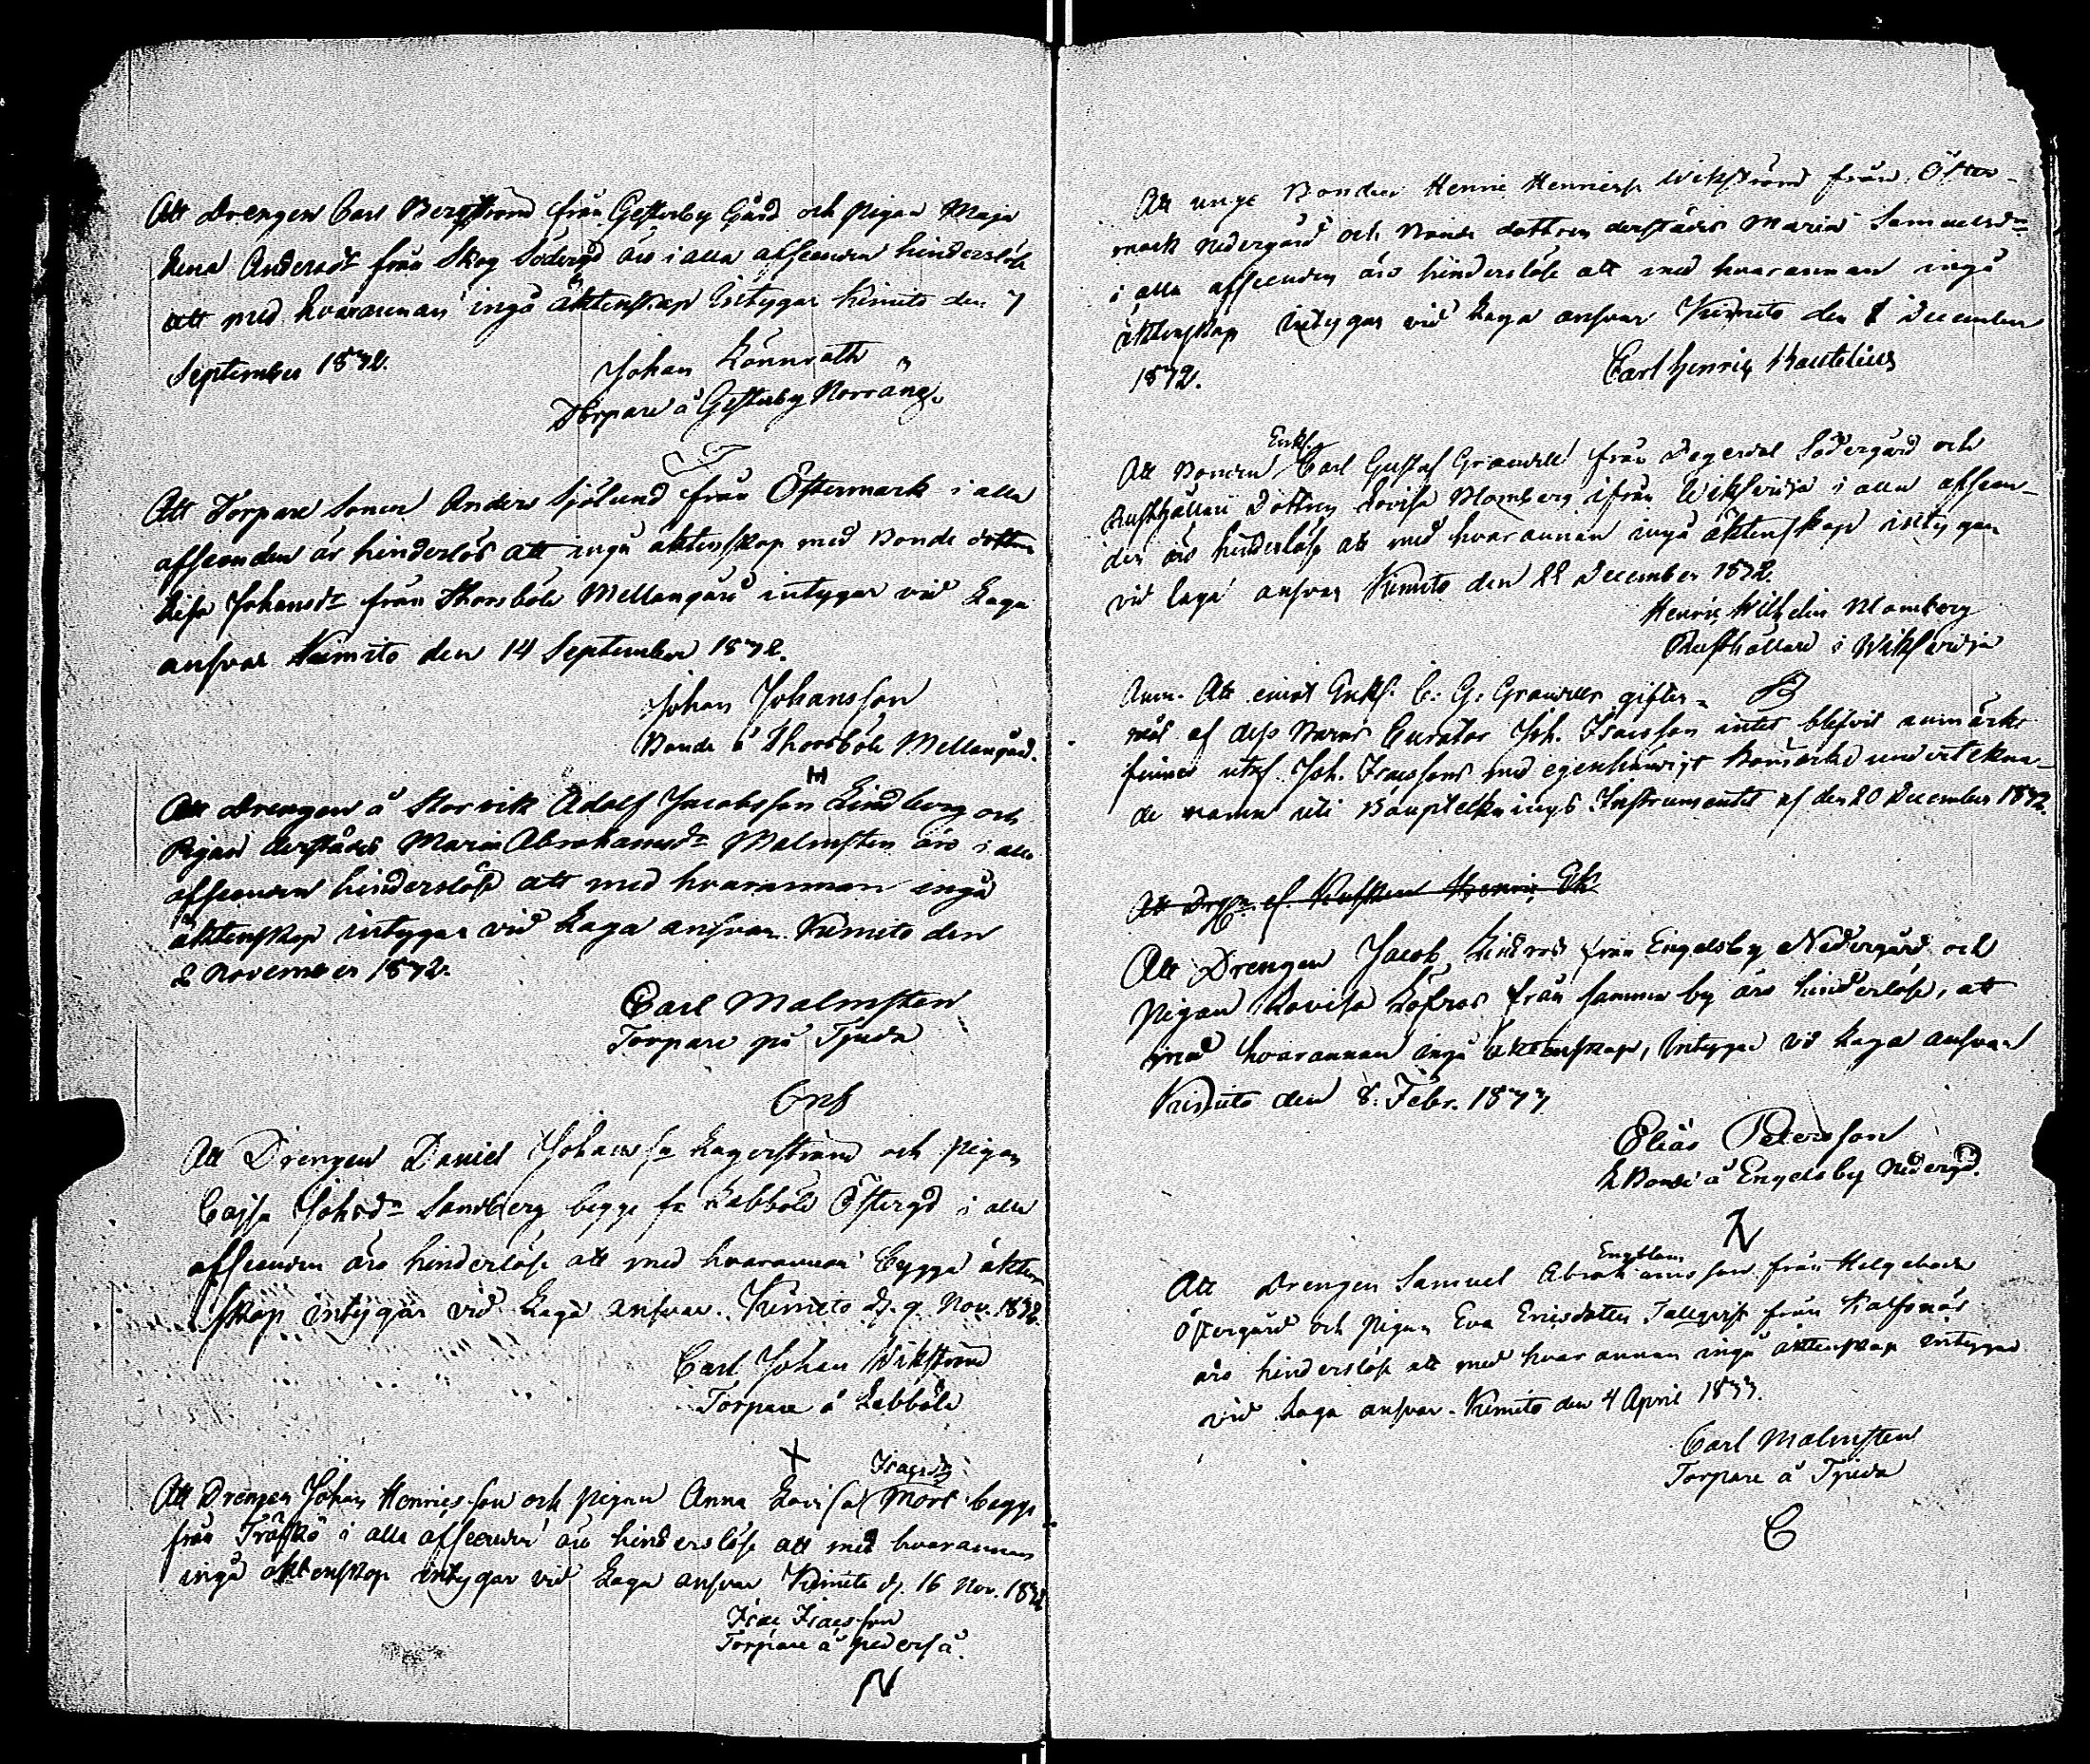 Att Drengen Carl Bergström från Gesterby Gård och Pigan Maja
Lena Andersdr från Skog Södergd äro i alla afseenden hinderslöse
att med hvarannan ingå äktenskap Intygar Kimito den 7
September 1872.
Johan Lönnroth
Torpare å Gesterby Norräng.
Att Torpare Sonen Anders Sjölund från Östermark i alla
afseenden är hinderlös att ingå äktenskap med Bonde dottren
Lisa Johansdr från Thorsböle Mellangård intygar vid Laga
ansvar Kimito den 14 September 1872.
Johan Johansson
Bonde å Thorsböle Mellangård.
Att Drengen å Storvik Adolf Jacobsson Lindberg och
Pigan derstädes Maria Abrahamsdr Malmsten äro i alla
afseenden hinderslöse att med hvarannan ingå
äktenskap intygar vid Laga ansvar. Kimito den
2 November 1872.
Carl Malmsten
Torpare på Tjuda
Att Drengen Daniel Johansson Lagerström och Pigan
Cajsa Johsdr Sandberg begge fr Labböle Östergd i alla
afseenden äro hinderlöse att med hvarannan bygga äkten
skap intygar vid Laga ansvar. Kimito d. 9. Nov. 1872.
Carl Johan Wikström
Torpare å Labböle
X
Isacsdr
Att Drengen Johan Henricsson och pigan Anna Lovisa Mört begge
från Träskö i alla afseenden äro hinderslöse att med hvarannan
ingå äktenskap intygar vid Laga ansvar Kimito d. 16 Nov. 1872
Isac Isacsson
Torpare å Pederså.
N
Att unge Bonden Henric Henricss Wikström från Öster-
mark Nedergård och Bonde dottren derstädes Maria Samuelsdr
i alla afseenden äro hinderslöse att med hvarannan ingå
äktenskap Intygar vid Laga ansvar Kimito den December
1872.
Carl Henric
Enkl.
Att Bonden Carl Gustaf Granvill från Degerdal Södergård och
Rusthållare Dottren Lovisa Blomberg ifrån i alla afseen-
den äro hinderlöse att med hvarannan ingå äktenskap intygar
vid laga ansvar Kimito den 22 December 1872.
Henric Wilhelm Blomberg
Rusthållare i
B
Anm. Att emot Enkl. C. G. Granvills gifter-
mål af dess Barns Curator Joh. Isacsson intet blifvit anmärkt
finnes utaf Joh. Isacssons med egenhändigt Bomärke underteckna-
de namn uti Bouptecknings Instrumentet af den 20 December 1872.
Att Drgn. Henric Ek
Att Drengen Jacob Lindros från Engelsby Nedergård och
Pigan Lovisa Löfros från samma by äro hinderlöse, att
med hvarannan ingå äktenskap, Intygar vid Laga ansvar
Kimito den 8. Febr. 1873
Elias Petersson
Bonde å Engelsby Nedergd.
N
Engblom
Att Drengen Samuel Abrahamsson från Helgeboda
Östergård och Pigan Eva Ericsdotter Tallqvist från Kalfsnäs
äro hinderslöse att med hvarannan ingå äktenskap intygar
vid Laga ansvar. Kimito den 4 April 1873.
Carl Malmsten
Torpare å Tjuda
C